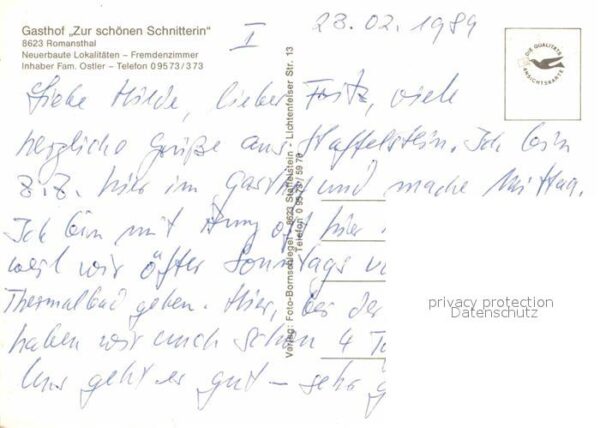 Gasthof „Zur schönen Schnitterin"
8623 Romansthal
Neuerbaute Lokalitäten – Fremdenzimmer
Inhaber Fam. Ostler – Telefon 0 95 73 / 3 73
I
23.02.1989
DIE QUALITÄTS ANSICHTSKARTE
Liebe Hilde, lieber Fritz, viele
herzliche Grüße aus Staffelstein. Ich bin
z.Z. hier im Gasthof und mache Mittag.
Ich bin mit oft hier
weil wir öfter Sonntags
Thermalbad gehen. Hier, bei der
haben wir auch schon 4
Uns geht es gut – sehr
Verlag: Foto-Bornschlegel - 8623 Staffelstein - Lichtenfelser Str. 13
Telefon 0 95 73 / 59 78
privacy protection
Datenschutz